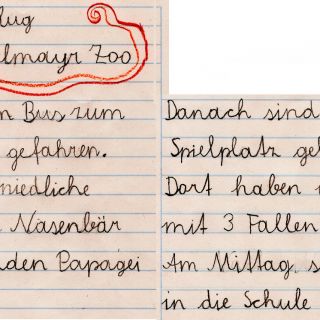 lug
lmayr Zoo
n Bus zum
gefahren.
niedliche
Nasenbär
den Papagei
Danach sind
Spielplatz ge
Dort haben
mit 3 Fallen
Am Mittag s
in die Schule